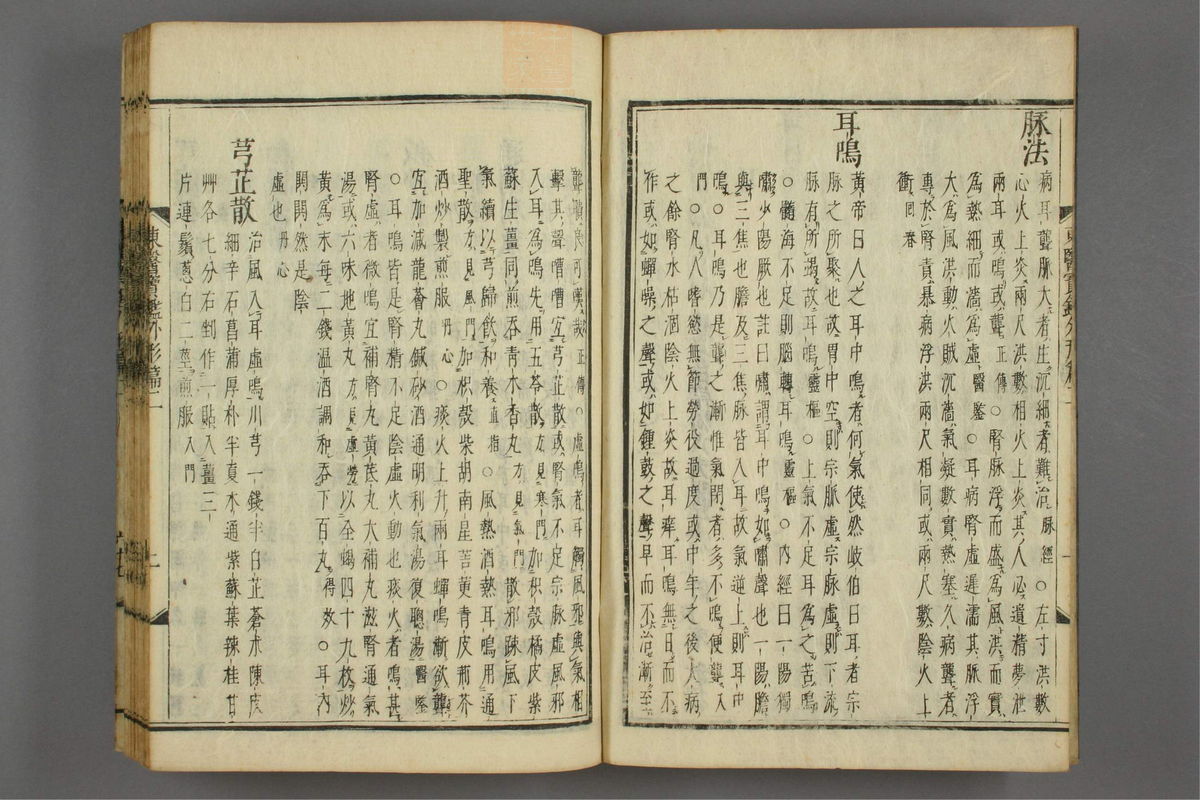 脉法
病耳聾脉大者生沉細者難治脉經○左寸洪數
心火上炎兩尺洪數相火上炎其人必遺精夢泄
兩耳或鳴或聾正傳○腎脉浮而盛爲風洪而實
爲熱細而濇爲虛醫鑒○耳病腎虛遲濡其脉浮
大爲風洪動火賊沉濇氣凝數實熱塞久病聾者
專於腎責暴病浮洪兩尺相同或兩尺數陰火上
衝回春
耳鳴
黃帝曰人之耳中鳴者何氣使然岐伯曰耳者宗
脉之所聚也故胃中空則宗脉虛宗脉虛則下流
脉有所竭故耳鳴靈樞○上氣不足耳爲之苦鳴
○髓海不足則腦轉耳鳴靈樞○內經曰一陽獨
嘯少陽厥也註曰嘯謂耳中鳴如嘯聲也一陽膽
與三焦也膽及三焦脉皆入耳故氣逆上則耳中
鳴○耳鳴乃是聾之漸惟氣閉者多不鳴便聾入
門○凡人嗜慾無節勞役過度或中年之後大病
之餘腎水枯涸陰火上炎故耳痒耳鳴無日而不
作或如蟬噪之聲或如鍾鼓之聲早而不治漸至
聾聵良可嘆哉正傳○虛鳴者耳觸風邪與氣相
擊其聲嘈嘈宜芎芷散或腎氣不足宗脉虛風邪
入耳爲鳴先用五苓散方見寒門加枳殼橘皮紫
蘇生薑同煎吞青木香丸方見氣門散邪踈風下
氣續以芎歸飮和養直指○風熱酒熱耳鳴用通
聖散方見風門加枳殼柴胡南星荳更青皮荊芥
酒炒製煎服丹心○痰火上升兩耳蟬鳴漸欲聾
宜加減龍薈丸鍼砂酒通明利氣湯復聰湯醫鑒
○耳鳴皆是腎精不足陰虛火動也痰火者鳴甚
腎虛者微鳴宜補腎丸黃芪丸大補丸滋腎通氣
湯或六味地黃丸方見虛勞以全蝎四十九枚炒
黃爲末每二錢溫酒調和吞下百丸得效○耳內
閧閧然是陰
虛也丹心
芎芷散
治風入耳虛鳴川芎一錢半白芷蒼朮陳皮
細辛石菖蒲厚朴半夏木通紫蘇葉辣桂甘
艸各七分右剉作一貼入薑三
片連鬚蔥白二莖煎服入門
東醫寶鑑外形篇二
上